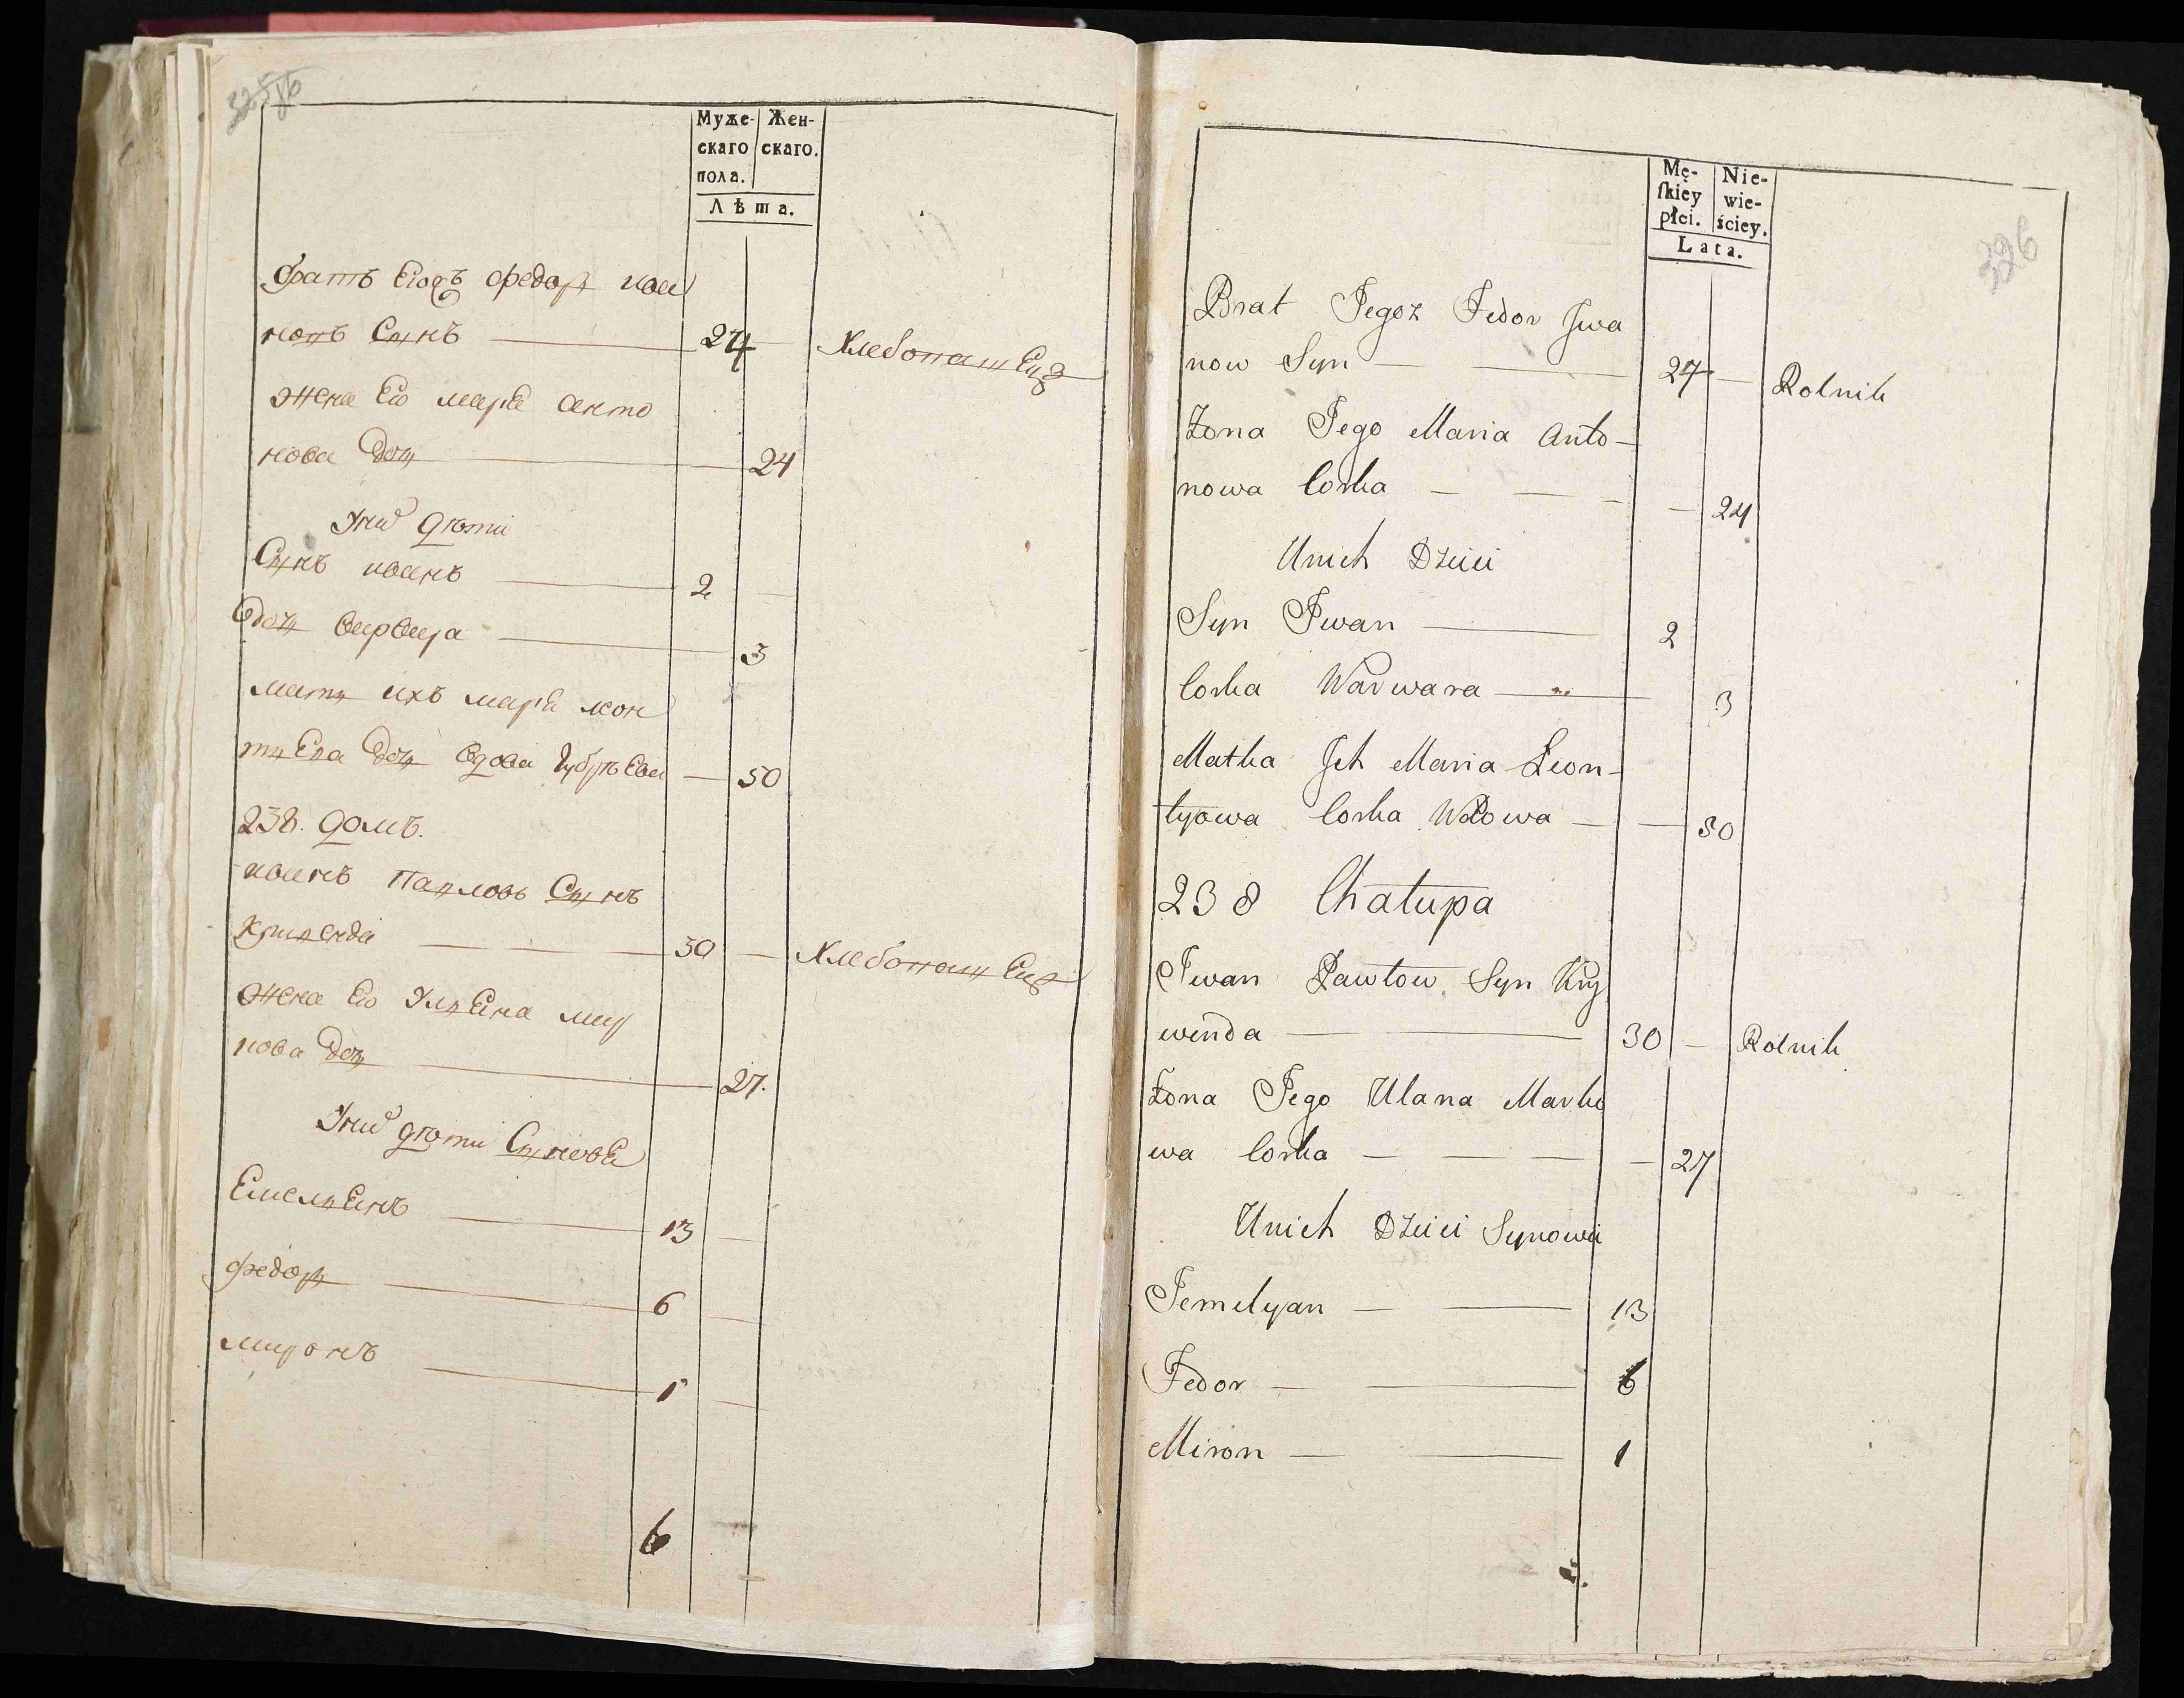 325 об
Муже- Жен-
скаго скаго.
пола.
Лѣта.
братъ Егожъ Федоръ ива
новъ Сынъ 27 — Хлебопашецъ
жена Его марья анто
нова дочь — 24
У них дѣти
Сынъ иванъ 2 —
дочь варвара 3
мать ихъ марья леон
тьева дочь вдова — 50
238. домъ.
иванъ Павловъ Сынъ
Кривенда 30 — Хлебопашецъ
жена Его Ульяна мар
кова дочь 27.
У них дѣти Сыновья
Емельянъ 13 —
Федоръ 6 —
миронъ 1 —
6
326
Mę- Nie-
ſkiey wie-
płci. ściey.
Lata.
Brat Jegoż Fedor Jwa
now Syn — 27 — Rolnik
Żona Jego Maria Anto-
nowa Corka — — 24
Unich Dzieci
Syn Jwan — 2
Corka Warwara — 3
Matka Jch Maria Leon-
tyowa Corka Wdowa — — 50
238 Chałupa
Jwan Pawłow Syn Kry
wenda — 30 — Rolnik
Żona Jego Ulana Marko
wa Corka — — — — 27
Unich Dzieci Synowie
Jemelyan — — 13
Fedor — — 6
Miron — — 1